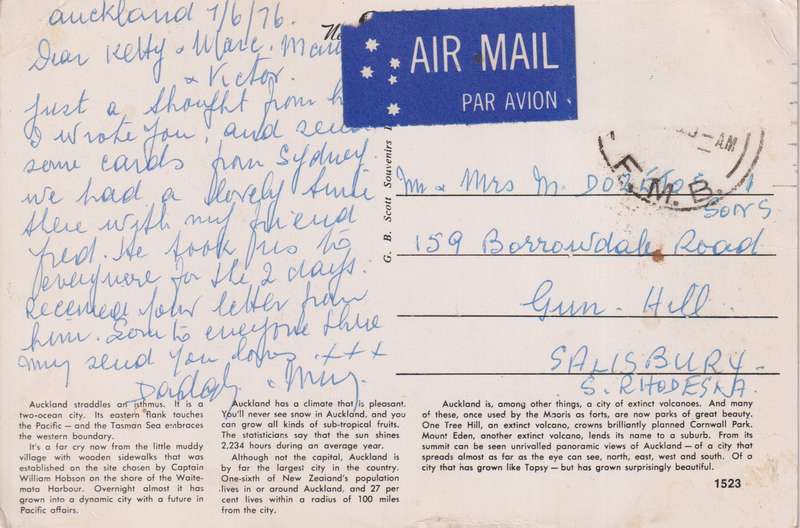 Auckland 7/6/76.
Dear Ketty & Marc. 
& Victor.
Just a thought from h
I wrote you, and send
some cards from Sydney.
we had a lovely time
there with my friend
fred. He took us to
everywere for the 2 days.
Received your letter from
him. Love to everyone there
Mny send you loves +++
Daddy & Mny.
AIR MAIL
PAR AVION
AM
F.M.B.
G. B. Scott Souvenirs
Mr & Mrs M.
SONS
159 Borrowdale Road
Gun-Hill
SALISBURY-
S. RHODESIA.
Auckland straddles an isthmus. It is a
two-ocean city. Its eastern flank touches
the Pacific — and the Tasman Sea embraces
the western boundary.
It's a far cry now from the little muddy
village with wooden sidewalks that was
established on the site chosen by Captain
William Hobson on the shore of the Waite-
mata Harbour. Overnight almost it has
grown into a dynamic city with a future in
Pacific affairs.
Auckland has a climate that is pleasant.
You'll never see snow in Auckland, and you
can grow all kinds of sub-tropical fruits.
The statisticians say that the sun shines
2,234 hours during an average year.
Although not the capital, Auckland is
by far the largest city in the country.
One-sixth of New Zealand's population
lives in or around Auckland, and 27 per
cent lives within a radius of 100 miles
from the city.
Auckland is, among other things, a city of extinct volcanoes. And many
of these, once used by the Maoris as forts, are now parks of great beauty.
One Tree Hill, an extinct volcano, crowns brilliantly planned Cornwall Park.
Mount Eden, another extinct volcano, lends its name to a suburb. From its
summit can be seen unrivalled panoramic views of Auckland — of a city that
spreads almost as far as the eye can see, north, east, west and south. Of a
city that has grown like Topsy — but has grown surprisingly beautiful.
1523